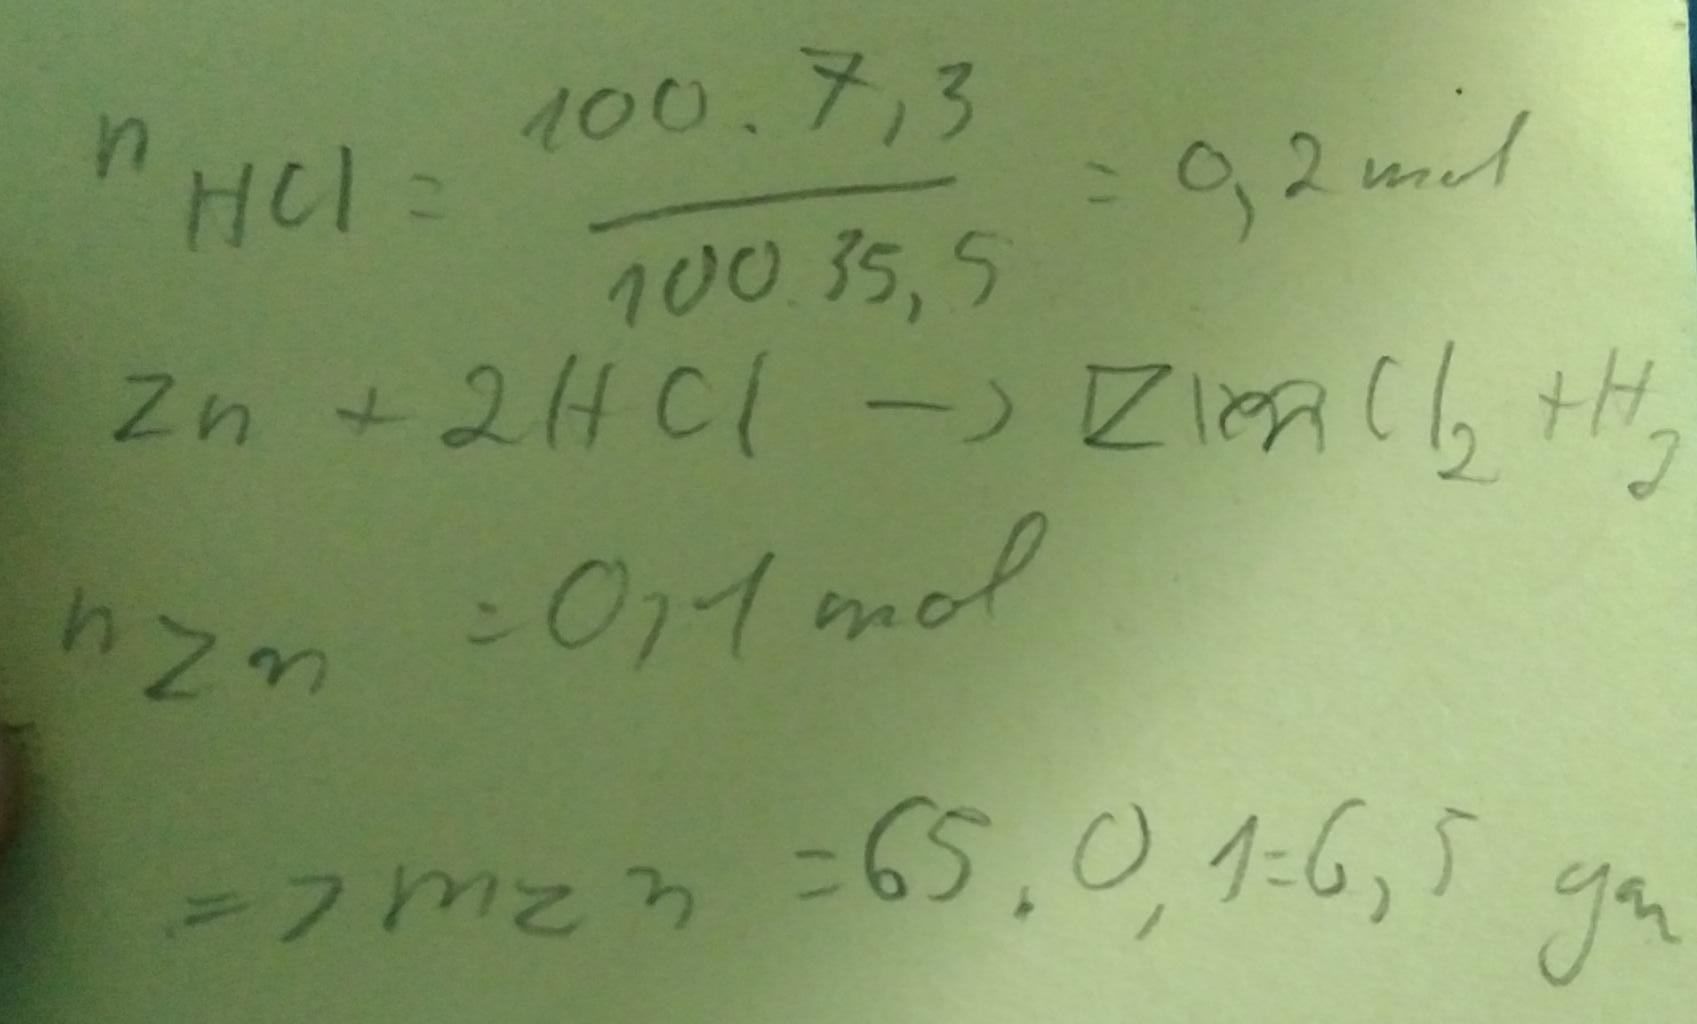 nHCl = 100 . 7,3 / 100 . 35,5 = 0,2 mol
Zn + 2HCl -> Cl2 + H2
nZn = 0,1 mol
=> mZn = 65 . 0,1 = 6,5 gam